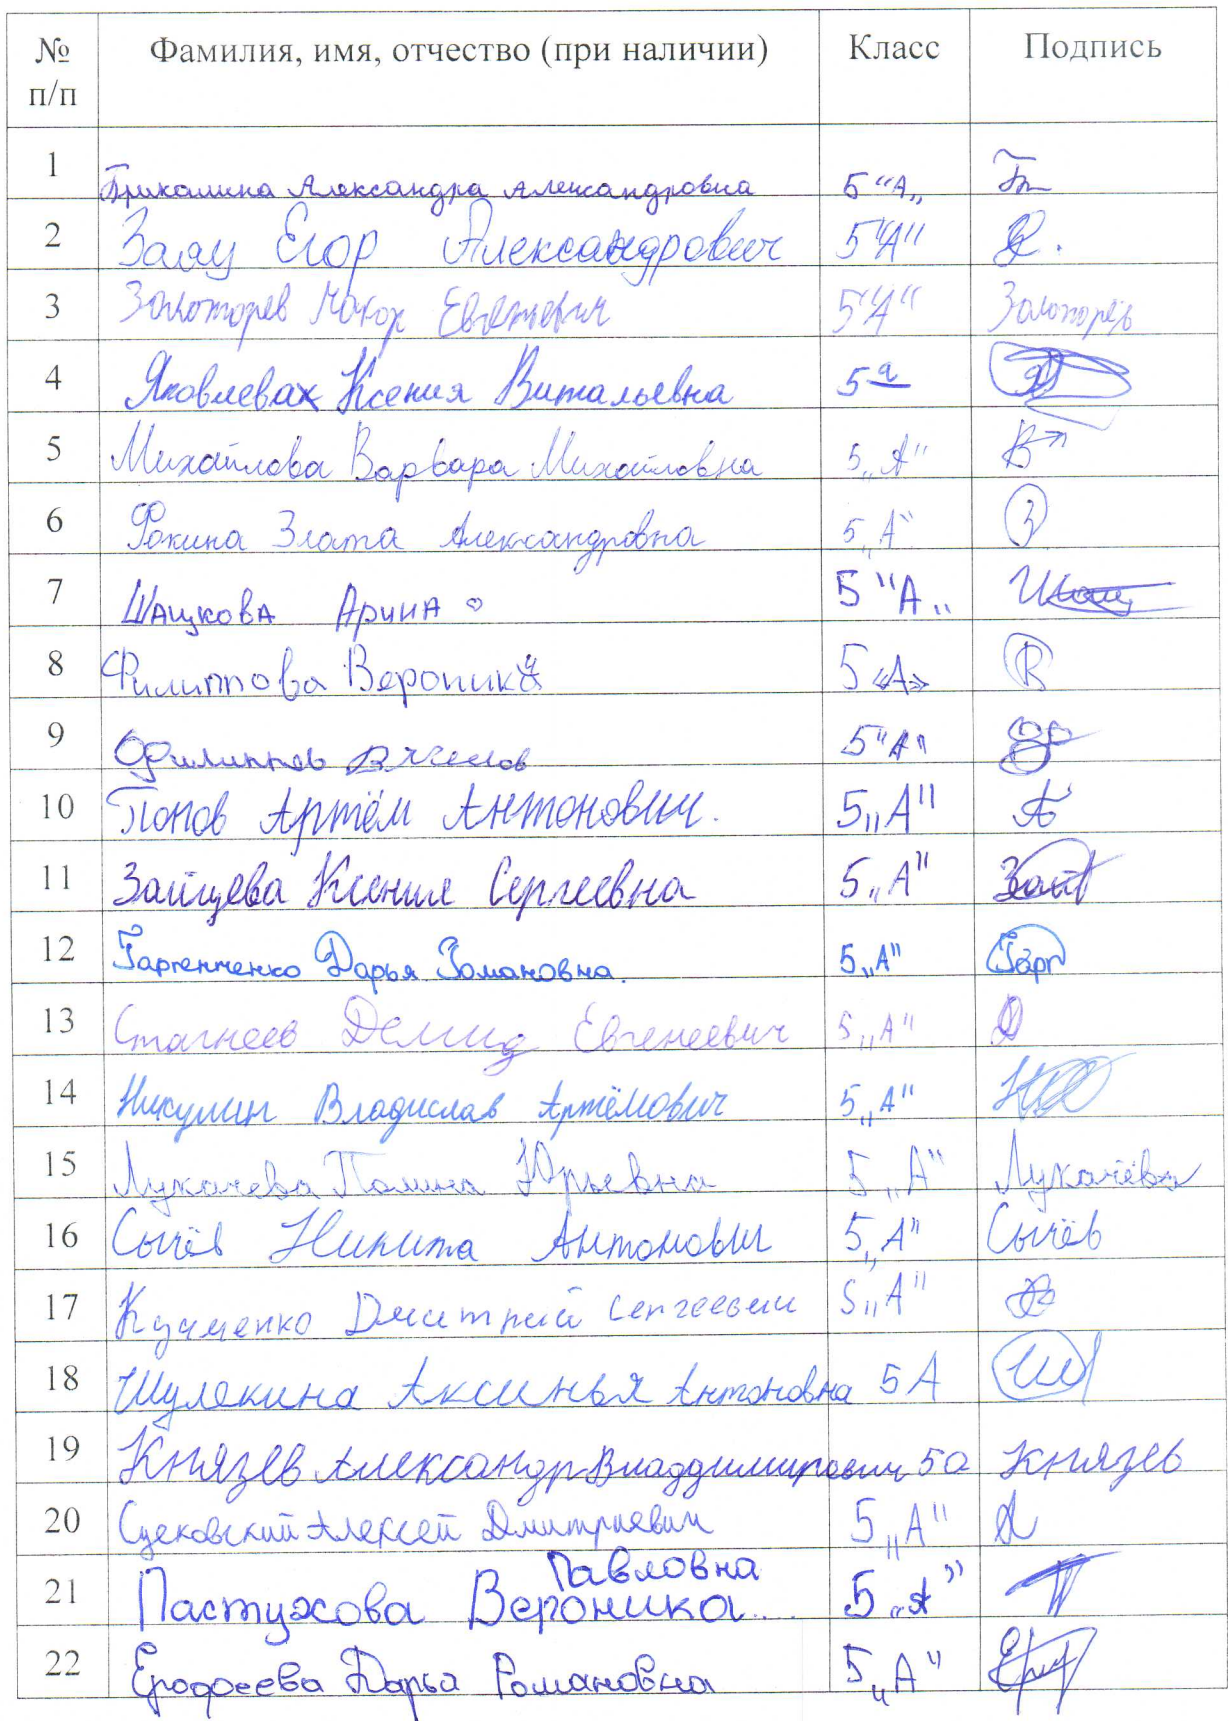 № п/п Фамилия, имя, отчество (при наличии) Класс Подпись
1 Александра Александровна 5 "А"
2 Заяц Егор Александрович 5 "А"
3 Золоторев Макар Евгеневич 5 "А" Золоторёв
4 Яковлева Ксения Витальевна 5 а
5 Михайлова Варвара Михайловна 5 „А"
6 Фокина Злата Александровна 5 „А" З
7 Шацкова Арина 5 "А"
8 Филиппова Вероника 5 «А» В
9 Филиппов 5 "А"
10 Попов Артём Антонович. 5 „А"
11 Зайцева Ксения Сергеевна 5 „А" Зай
12 Дарья Романовна. 5 „А"
13 Стагнеев Демид Евгенеевич 5 „А"
14 Никулин Владислав Артёмович 5 „А"
15 Лукачева Полина Юрьевна 5 „А" Лукачёва
16 Сычёв Никита Антонович 5 „А" Сычёв
17 Дмитрий Сергеевич 5 „А"
18 Шулекина Аксинья Антоновна 5 А
19 Князев Александр Владдимирович 5а Князев
20 Алексей Дмитриевич 5 „А"
Павловна
21 Пастухова Вероника 5 „А"
22 Дарья Романовна 5 „А"